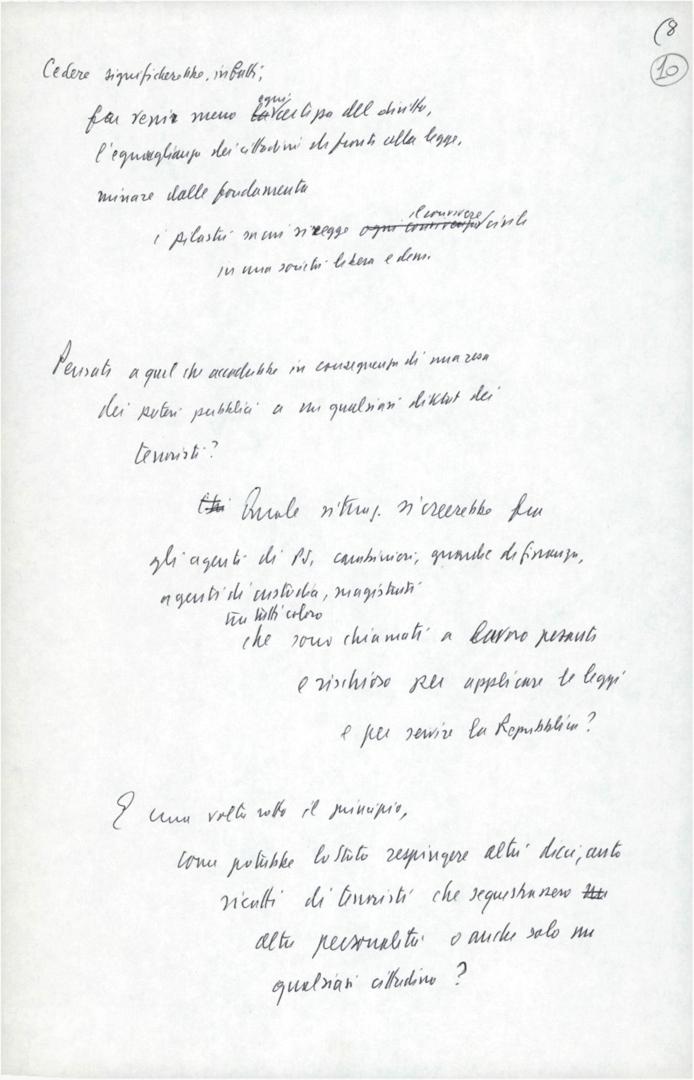 (8
10
Cedere significherebbe, infatti,
far venir meno ogni certezza del diritto,
l'eguaglianza dei cittadini di fronte alla legge,
minare dalle fondamenta
i pilastri su cui si regge il convivere civile
in una società libera e dem.
Pensate a quel che accadrebbe in conseguenza di una resa
dei poteri pubblici a un qualsiasi diktat dei
terroristi?
Quale situaz. si creerebbe fra
gli agenti di PS, carabinieri, guardie di finanza,
agenti di custodia, magistrati
tra tutti coloro
che sono chiamati a lavoro pesante
e rischioso per applicare le leggi
e per servire la Repubblica?
E una volta rotto il principio,
come potrebbe lo Stato respingere altri dieci, cento
ricatti di terroristi che sequestrassero
altre personalità o anche solo un
qualsiasi cittadino?